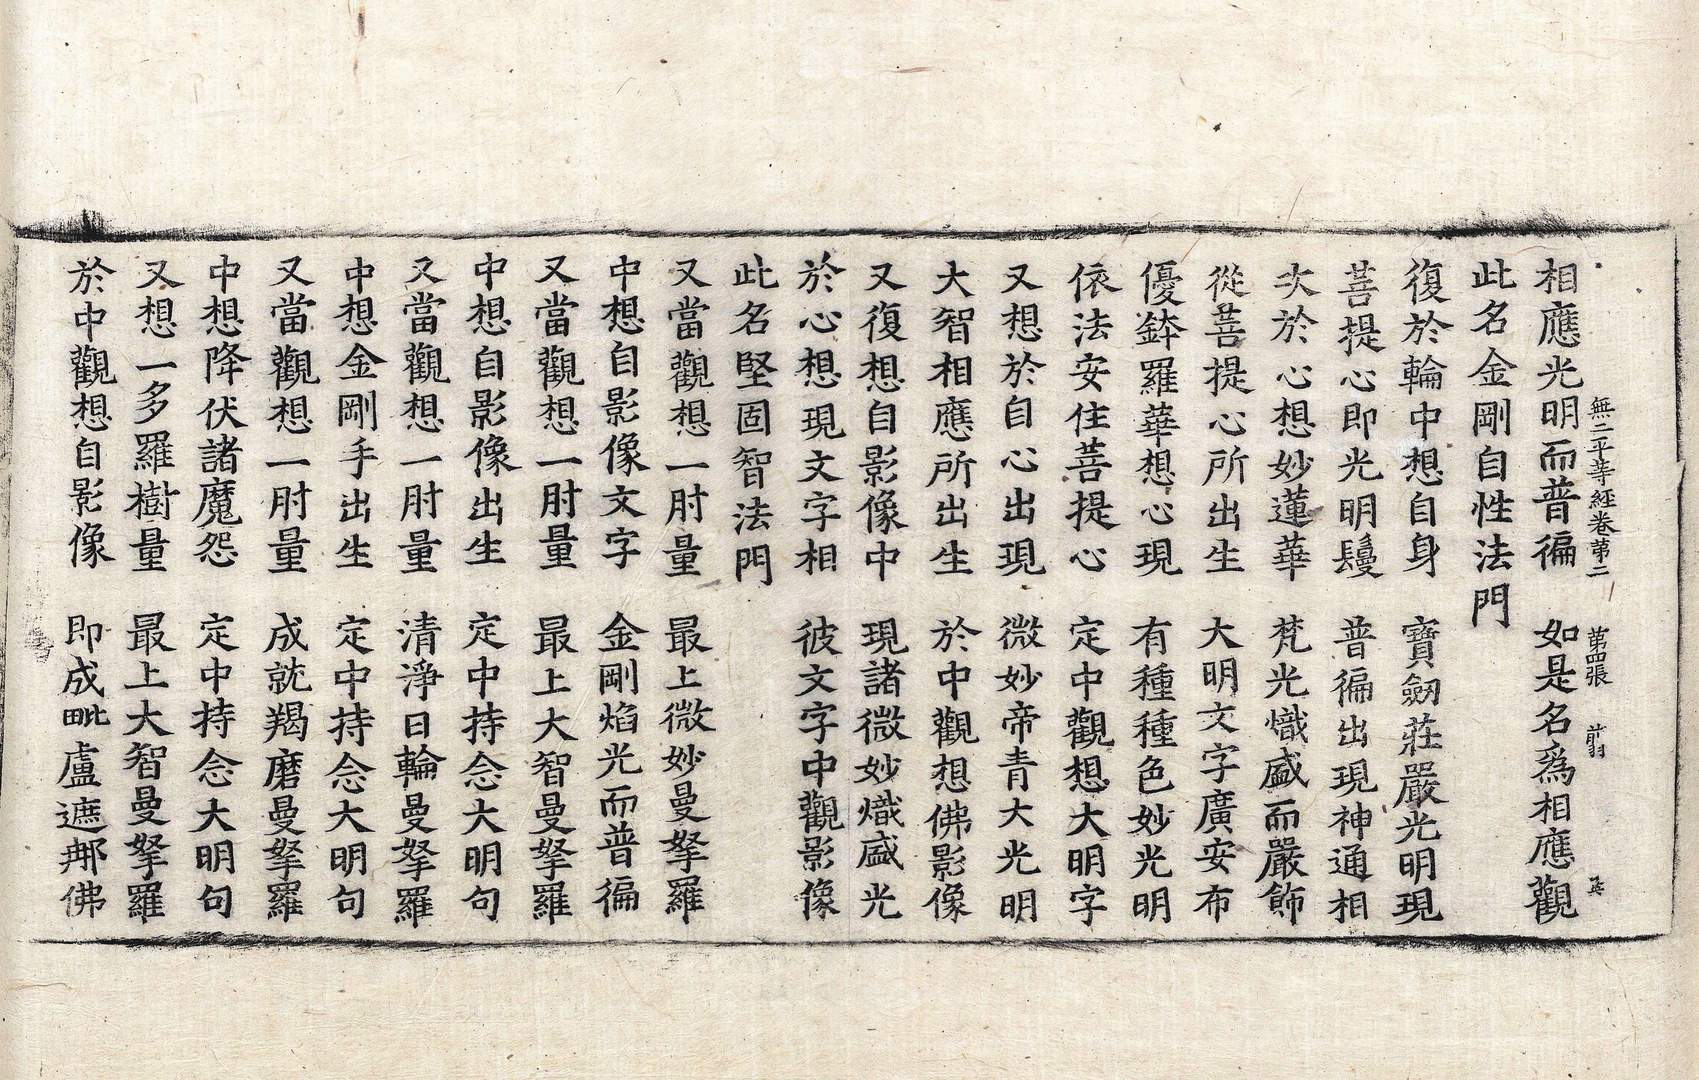 無二平等經卷第二 第四張 翦
相應光明而普徧 如是名爲相應觀
此名金剛自性法門
復於輪中想自身 寶劔莊嚴光明現
菩提心即光明鬘 普徧出現神通相
次於心想妙蓮華 梵光熾盛而嚴飾
從菩提心所出生 大明文字廣安布
優鉢羅華想心現 有種種色妙光明
依法安住菩提心 定中觀想大明字
又想於自心出現 微妙帝青大光明
大智相應所出生 於中觀想佛影像
又復想自影像中 現諸微妙熾盛光
於心想現文字相 彼文字中觀影像
此名堅固智法門
又當觀想一肘量 最上微妙曼拏羅
中想自影像文字 金剛焰光而普徧
又當觀想一肘量 最上大智曼拏羅
中想自影像出生 定中持念大明句
又當觀想一肘量 清淨日輪曼拏羅
中想金剛手出生 定中持念大明句
又當觀想一肘量 成就羯磨曼拏羅
中想降伏諸魔怨 定中持念大明句
又想一多羅樹量 最上大智曼拏羅
於中觀想自影像 即成毗盧遮那佛